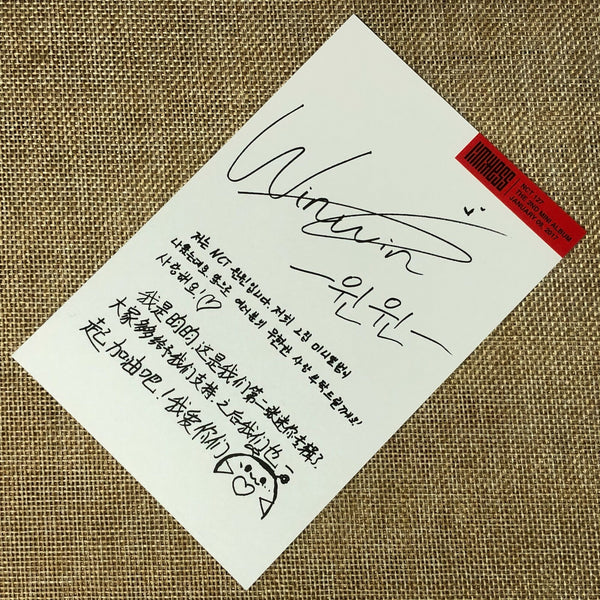 LIMITLESS
NCT 127
THE 2ND MINI ALBUM
JANUARY 06, 2017
Winwin
-윈윈-
저는 NCT 윈윈입니다. 저희 2집 미니앨범이
나왔는데요 앞으로 여러분의 무한한 사랑 부탁드릴게요!
사랑해요!♡
我是昀昀 这是我们第二张迷你专辑了,
大家多多给予我们支持,之后我们也一
起加油吧!我爱你们